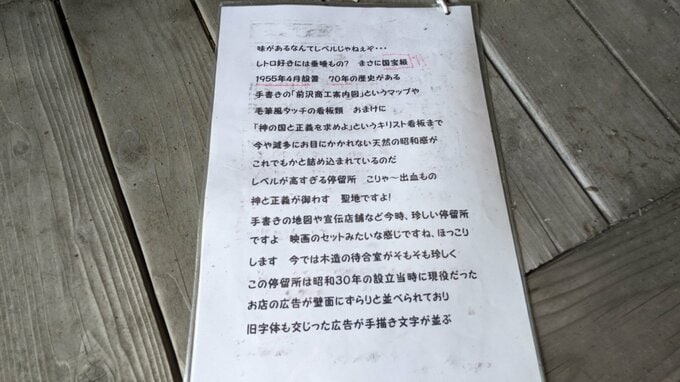 味があるなんてレベルじゃねぇぞ・・・
レトロ好きには垂唾もの？　まさに国宝級
1955年4月設置　70年の歴史がある
手書きの「前沢商工案内図」というマップや
毛筆風タッチの看板類　おまけに
「神の国と正義を求めよ」というキリスト看板まで
今や滅多にお目にかかれない天然の昭和感が
これでもかと詰め込まれているのだ
レベルが高すぎる停留所　こりゃ～出血もの
神と正義が御わす　聖地ですよ！
手書きの地図や宣伝店舗など今時、珍しい停留所
ですよ　映画のセットみたいな感じですね、ほっこり
します　今では木造の待合室がそもそも珍しく
この停留所は昭和30年の設立当時に現役だった
お店の広告が壁面にずらりと並べられており
旧字体も交じった広告が手描き文字が並ぶ